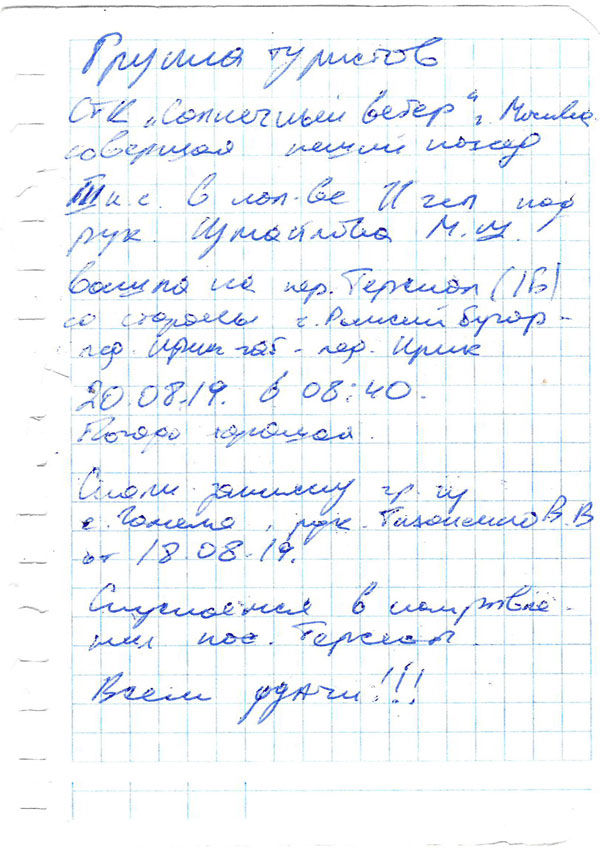 Группа туристов
СТК "Солнечный ветер" г. Москва
совершая пеший поход
III к.с. в кол-ве 11 чел под
рук. Измайлова М.
вышла на пер. Терскол (1Б)
со стороны
лед. Ирикчат - лед. Ирик
20.08.19. в 08:40.
Погода хорошая.
Сняли записку гр. из
г. Гомеля, рук. В.В
от 18.08.19.
Спускаемся в направле-
нии пос. Терскол.
Всем удачи!!!